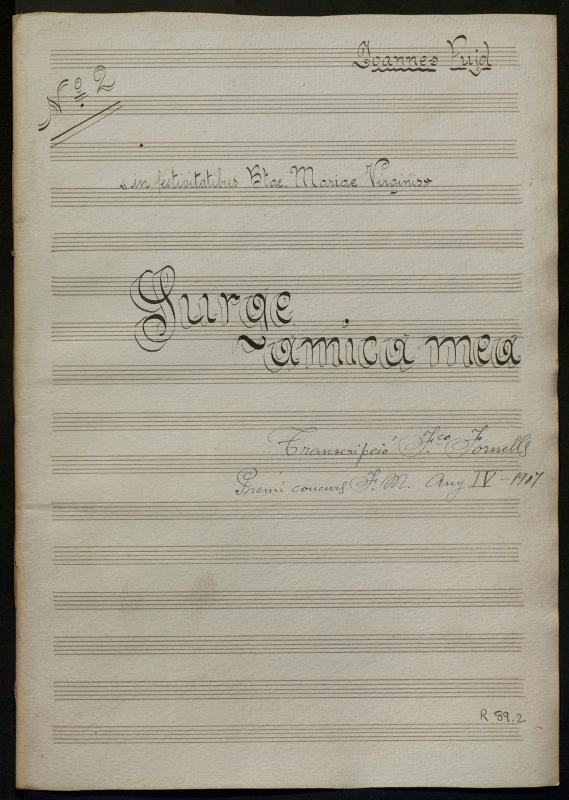 Joannes Pujol
Nº 2
«in festivitatibus Btae. Mariae Virginis»
Surge
amica mea
Transcripció F.co Fornells
Premi concurs F. M. Any IV - 1907
R 89.2